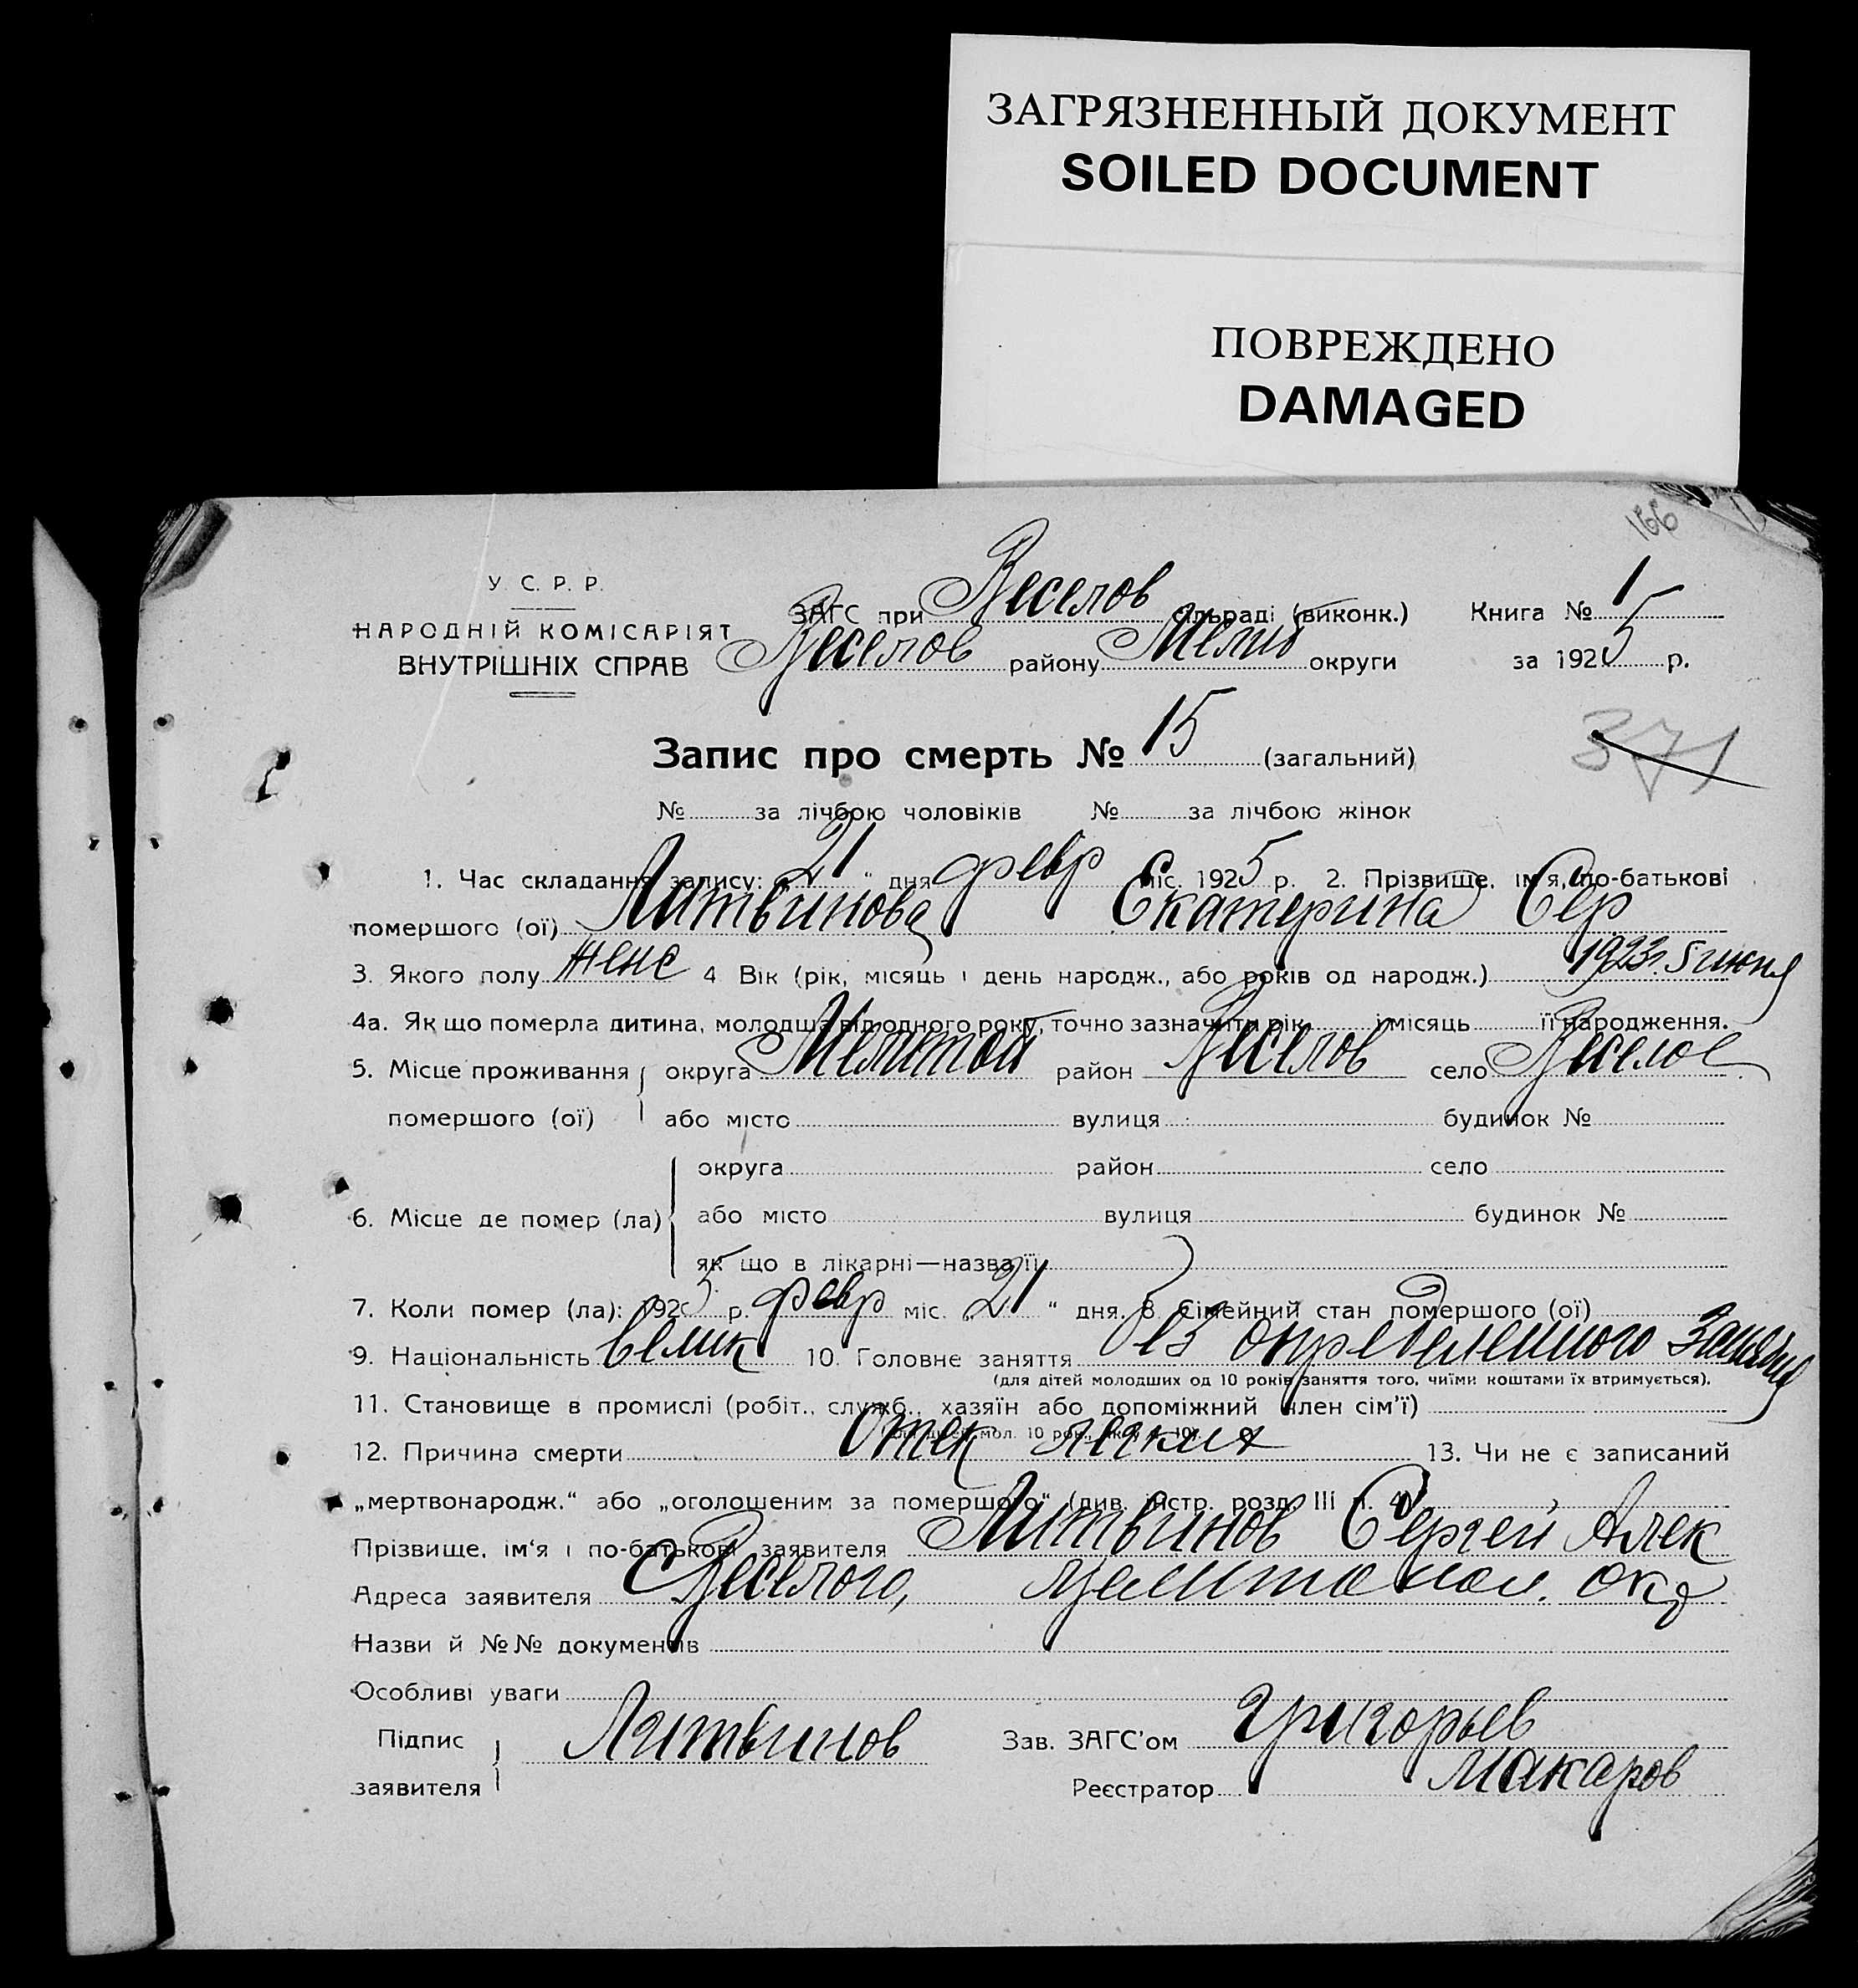 ЗАГРЯЗНЕННЫЙ ДОКУМЕНТ
SOILED DOCUMENT
ПОВРЕЖДЕНО
DAMAGED
166
У. С. Р. Р.
НАРОДНІЙ КОМІСАРІЯТ
ВНУТРІШНІХ СПРАВ
ЗАГС при Веселов сільраді (виконк.) Книга № 1
Веселов району Мелит округи за 1925 р.
371
Запис про смерть № 15 (загальний)
№ за лічбою чоловіків № за лічбою жінок
1. Час складання запису: 21 " дня февр міс. 1925 р. 2. Прізвище, ім'я, по-батькові
помершого (ої) Литвинова Екатерина Сер
3. Якого полу женс 4 Вік (рік, місяць і день народж., або років од народж.) 1923г. 5 июня
4а. Як що померла дитина, молодша від одного року, точно зазначити рік і місяць її народження.
5. Місце проживання округа Мелитоп район Веселов село Веселое
помершого (ої) або місто вулиця будинок №
округа район село
6. Місце де помер (ла) або місто вулиця будинок №
як що в лікарні—назва її
7. Коли помер (ла): 1925 р. февр міс. „21 " дня. 8. Сімейний стан помершого (ої)
9. Національність велик 10. Головне заняття без определенного занятия
(для дітей молодших од 10 років заняття того, чиїми коштами їх втримується).
11. Становище в промислі (робіт., служб., хазяїн або допоміжний член сім'ї)
12. Причина смерти Отек легких 13. Чи не є записаний
„мертвонародж." або „оголошеним за помершого" (див. інстр. розд. III п. 4)
Прізвище, ім'я і по-батькові заявителя Литвинов Сергей Алек
Адреса заявителя С Веселого, Мелитопол. окр
Назви й №№ документів
Особливі уваги
Підпис заявителя Литвинов Зав. ЗАГС'ом Григорьев
Реєстратор Макаров